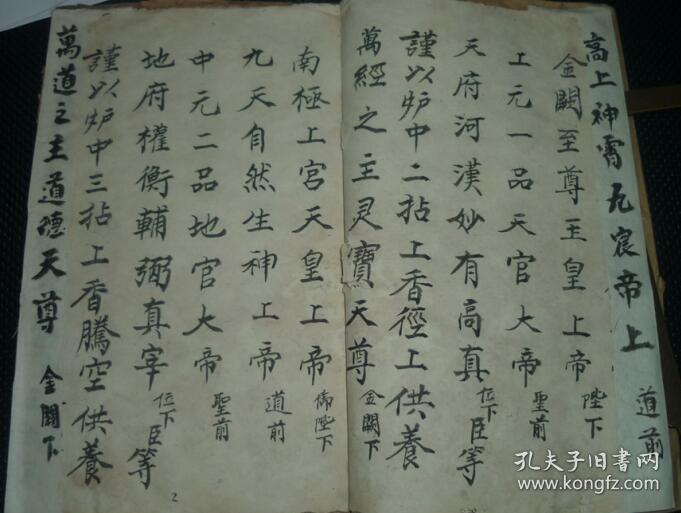 高上神霄九宸帝上 道前
金闕至尊玉皇上帝 陛下
上元一品天官大帝 聖前
天府河漢妙有高真 位下臣等
謹以炉中二拈上香徑上供養
萬經之主灵寶天尊 金闕下
南極上宮天皇上帝 御陛下
九天自然生神上帝 道前
中元二品地官大帝 聖前
地府權衡輔弼真宰 位下臣等
謹以炉中三拈上香騰空供養
萬道之主道德天尊 金闕下
2
孔夫子旧书网
www.kongfz.com